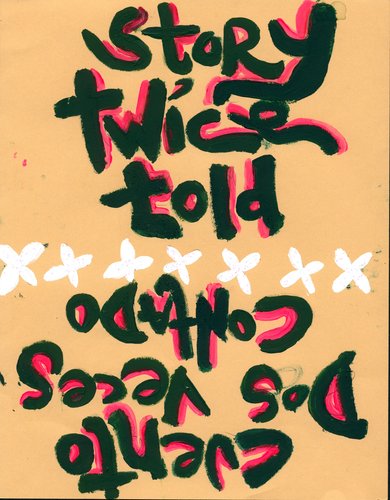 story
twice
told
cuento
Dos veces
contado